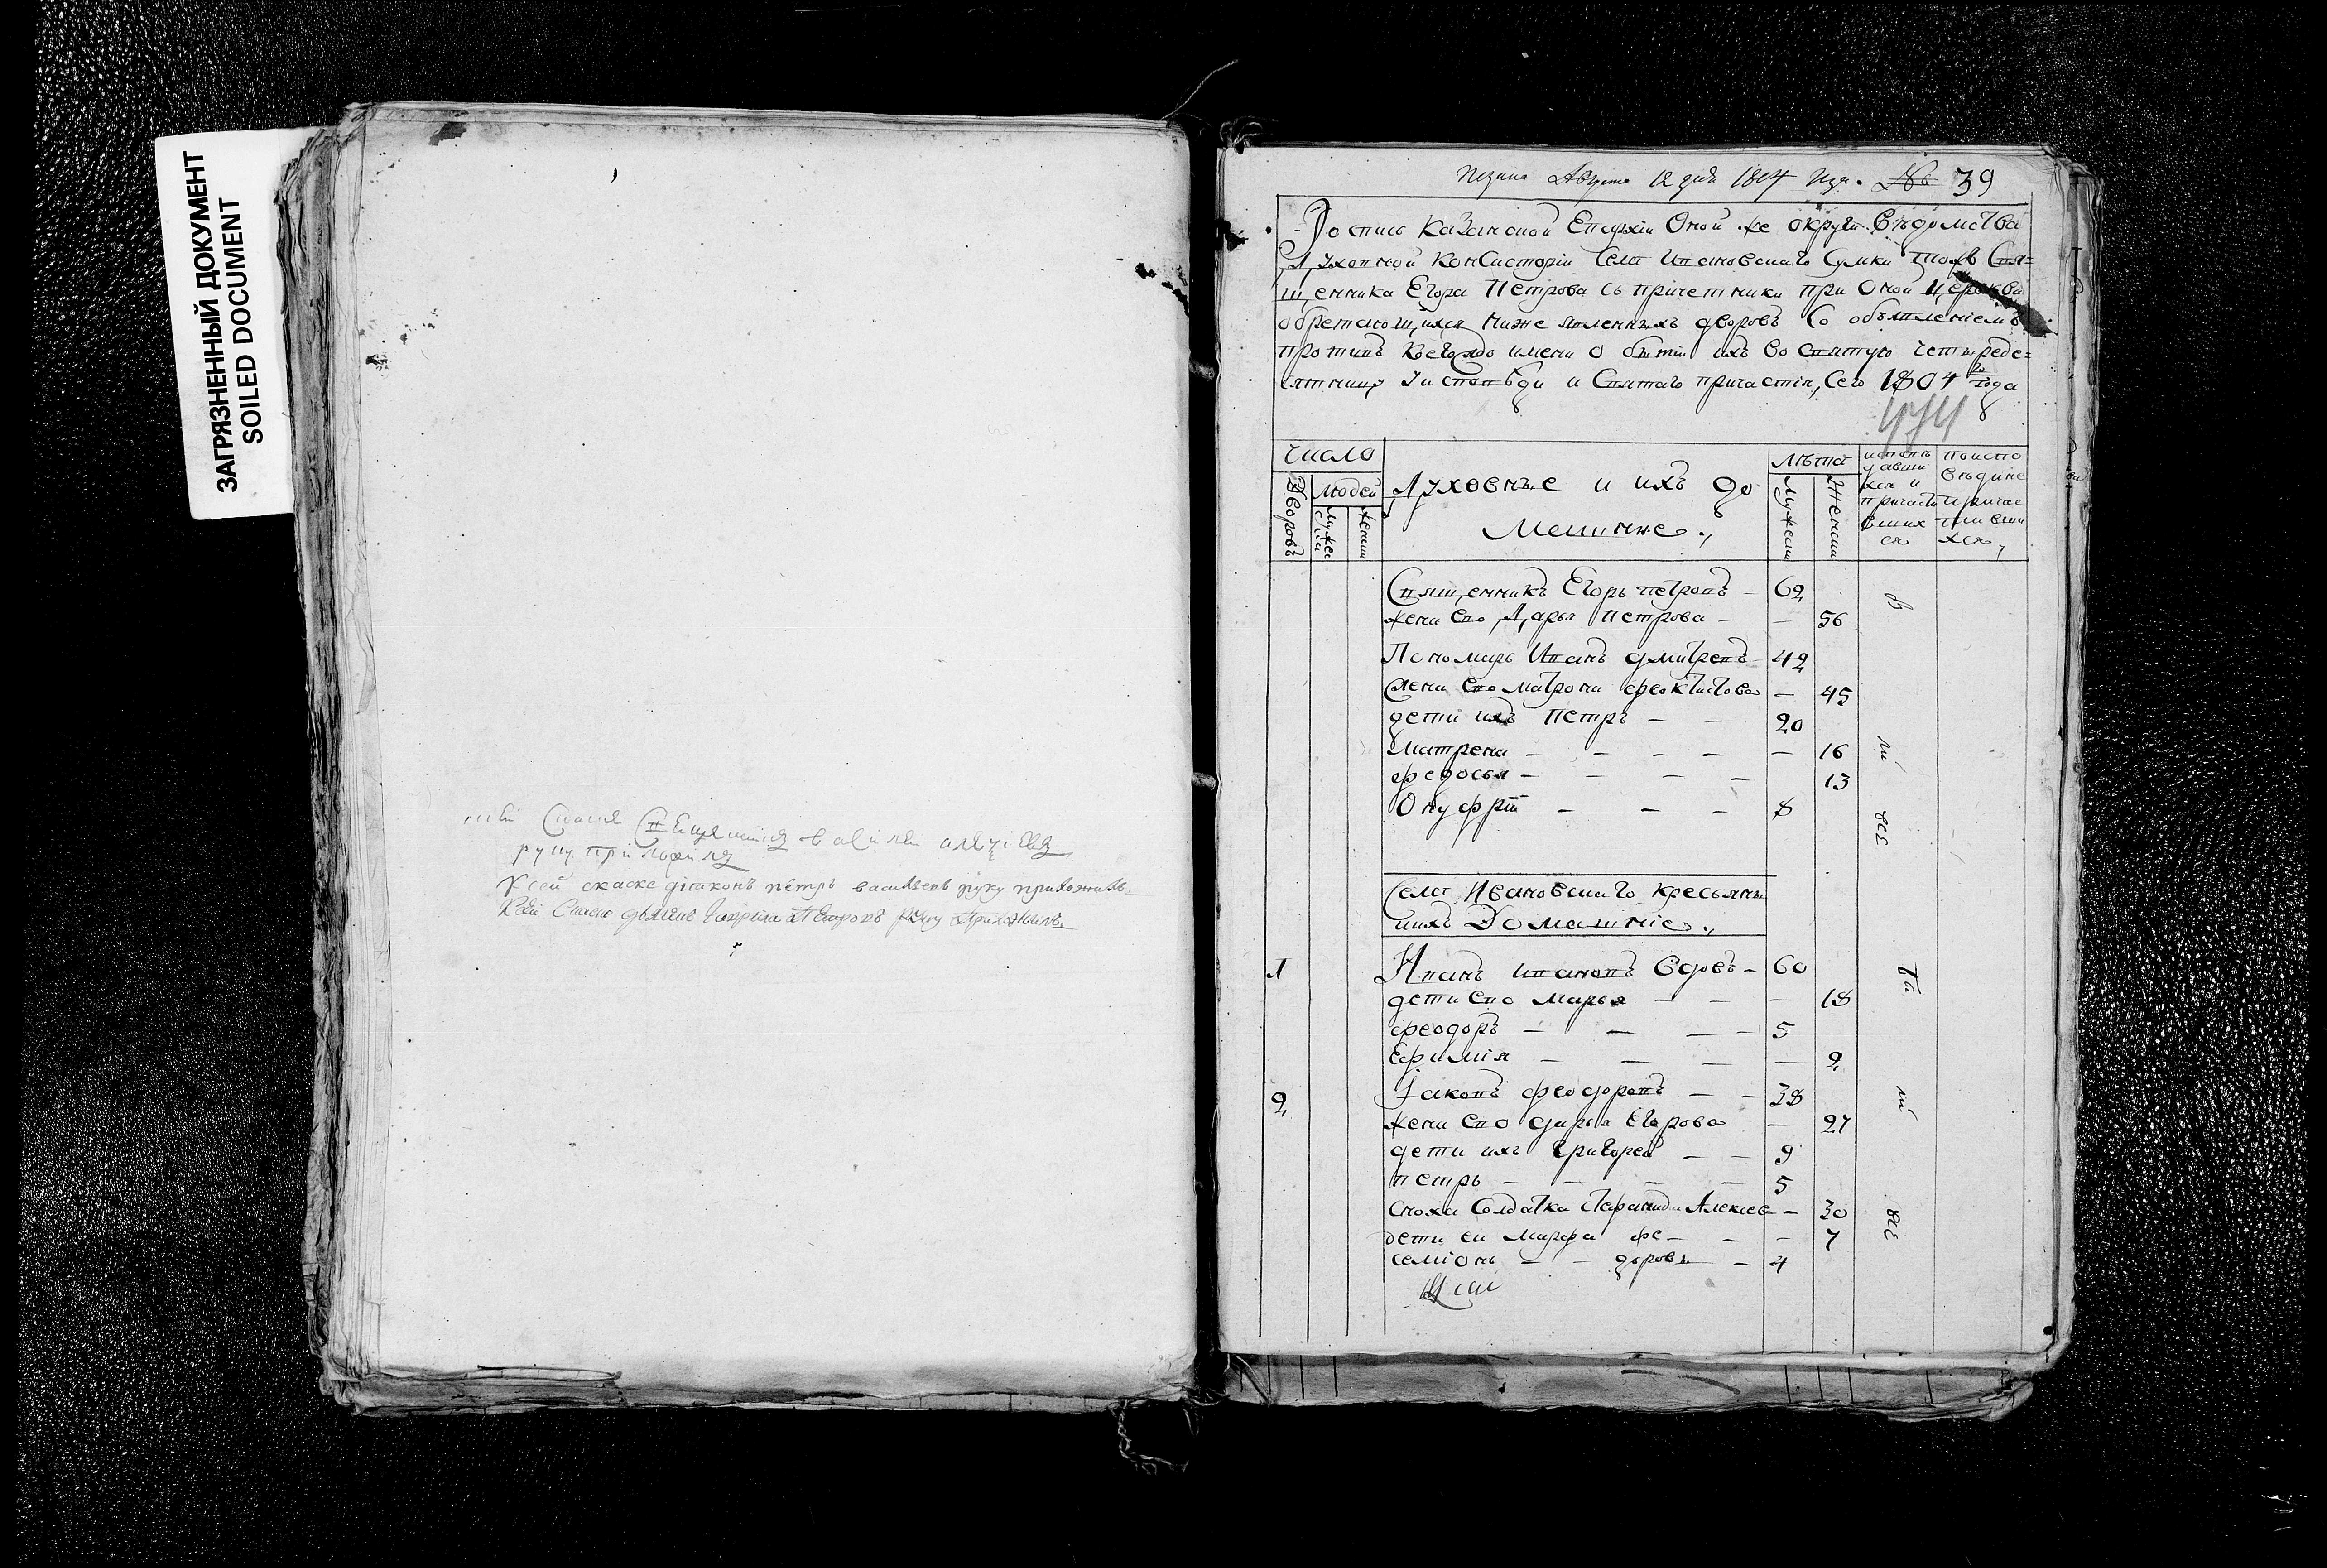 ЗАГРЯЗНЕННЫЙ ДОКУМЕНТ
SOILED DOCUMENT
руку приложилъ
К сей скаске діаконъ петръ васильевъ руку приложилъ
Августа 12 дня 1804 39
Роспись Казанской Епархіи Оной же округи вѣдомства
Духовной Консисторіи Села Ивановскаго Свя=
щенника Егора Петрова съ причетники при оной церкви
обретающихся ниже явленныхъ дворовъ со объявленіемъ
противъ коегождо имени о бытіи ихъ во святую четыреде=
сятницу у исповѣди и святаго причастія, сего 1804 года
Число
Дворовъ
Людей
Мужеска
Женска
Духовные и ихъ до
машніе.,
Лѣта
Мужеска
Женска
исповѣ
давши
хся и
причасти
вших
ся
по испо
вѣди не
причас
тивши
хся,
Священникъ Егоръ петровъ - 62
жена ево Дарья Петрова - - 56
Пономарь Иванъ дмитревъ 42
жена ево матрона феоктистова - 45
дети ихъ петръ - - 20
матрена - - - - - 16
федосья - - - - 13
Онуфрій - - - 8
Села Ивановскаго кресьяня
ихъ Домашніе.,
1 Иванъ ивановъ вдовъ - 60
дети ево марья - - - 18
феодоръ - - - - 5
Ефимія - - - - 2
2 Іаковъ феодоровъ - - 38
жена ево дарья Егорова - 27
дети ихъ григорей - - 9
петръ - - - - 5
сноха солдатка Алексее - 30
дети ея марфа фе - - - 7
семіонъ - - доровы - 4